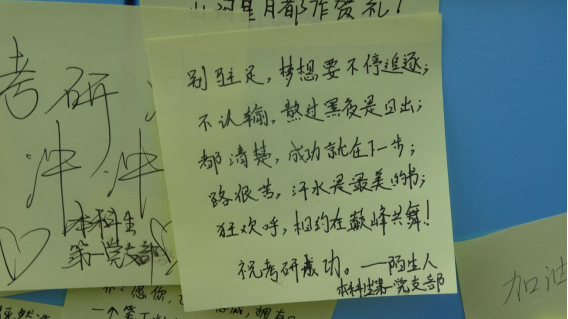 山河星月都作贺礼！
别驻足，梦想要不停追逐；
不认输，熬过黑夜是日出；
都清楚，成功就在下一步；
路很苦，汗水是最美的书；
狂欢呼，相约在巅峰共舞！
祝考研成功。——陌生人
本科生第一党支部
考研
冲 冲
本科生
第一党支部
加油